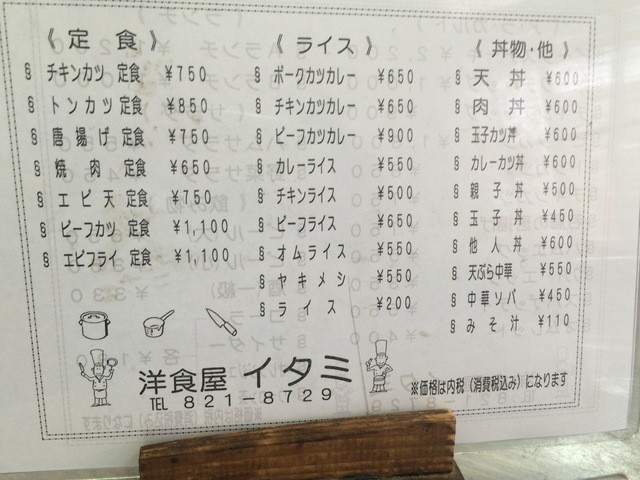 《 定 食 》
§ チキンカツ 定食 ¥750
§ トンカツ 定食 ¥850
§ 唐揚げ 定食 ¥750
§ 焼 肉 定食 ¥650
§ エビ天 定食 ¥750
§ ビーフカツ 定食 ¥1,100
§ エビフライ 定食 ¥1,100
《 ライス 》
§ ポークカツカレー ¥650
§ チキンカツカレー ¥650
§ ビーフカツカレー ¥900
§ カレーライス ¥550
§ チキンライス ¥500
§ ビーフライス ¥650
§ オムライス ¥550
§ ヤキメシ ¥550
§ ライス ¥200
《 丼物・他 》
§ 天 丼 ¥600
§ 肉 丼 ¥600
§ 玉子カツ丼 ¥600
§ カレーカツ丼 ¥600
§ 親 子 丼 ¥550
§ 玉 子 丼 ¥450
§ 他 人 丼 ¥600
§ 天ぷら中華 ¥550
§ 中華ソバ ¥450
§ みそ汁 ¥110
洋食屋 イタミ
TEL 821-8729
※価格は内税(消費税込み)になります